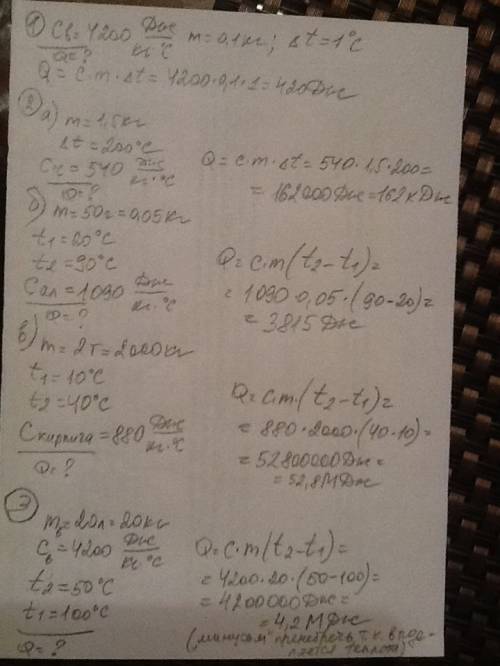 ① Cв = 4200 Дж/кг·°C m = 0,1кг; Δt = 1°C
Q = ?
Q = c·m·Δt = 4200·0,1·1 = 420 Дж
② а) m = 1,5кг
Δt = 200°C
Cч = 540 Дж/кг·°C
Q = ?
Q = c·m·Δt = 540·1,5·200 =
= 162000 Дж = 162 кДж
б) m = 50г = 0,05 кг
t1 = 20°C
t2 = 90°C
Cал = 1090 Дж/кг·°C
Q = ?
Q = c·m(t2 - t1) =
= 1090·0,05·(90-20) =
= 3815 Дж
в) m = 2т = 2000кг
t1 = 10°C
t2 = 40°C
Cкирпича = 880 Дж/кг·°C
Q = ?
Q = c·m·(t2 - t1) =
= 880·2000·(40-10) =
= 52800000 Дж =
= 52,8 МДж
③
mв = 20л = 20кг
Cв = 4200 Дж/кг·°C
t2 = 50°C
t1 = 100°C
Q = ?
Q = c·m(t2 - t1) =
= 4200·20·(50-100) =
= 4200000 Дж =
= 4,2 МДж
("минусом" пренебречь, т.к. выде-
ляется теплота)